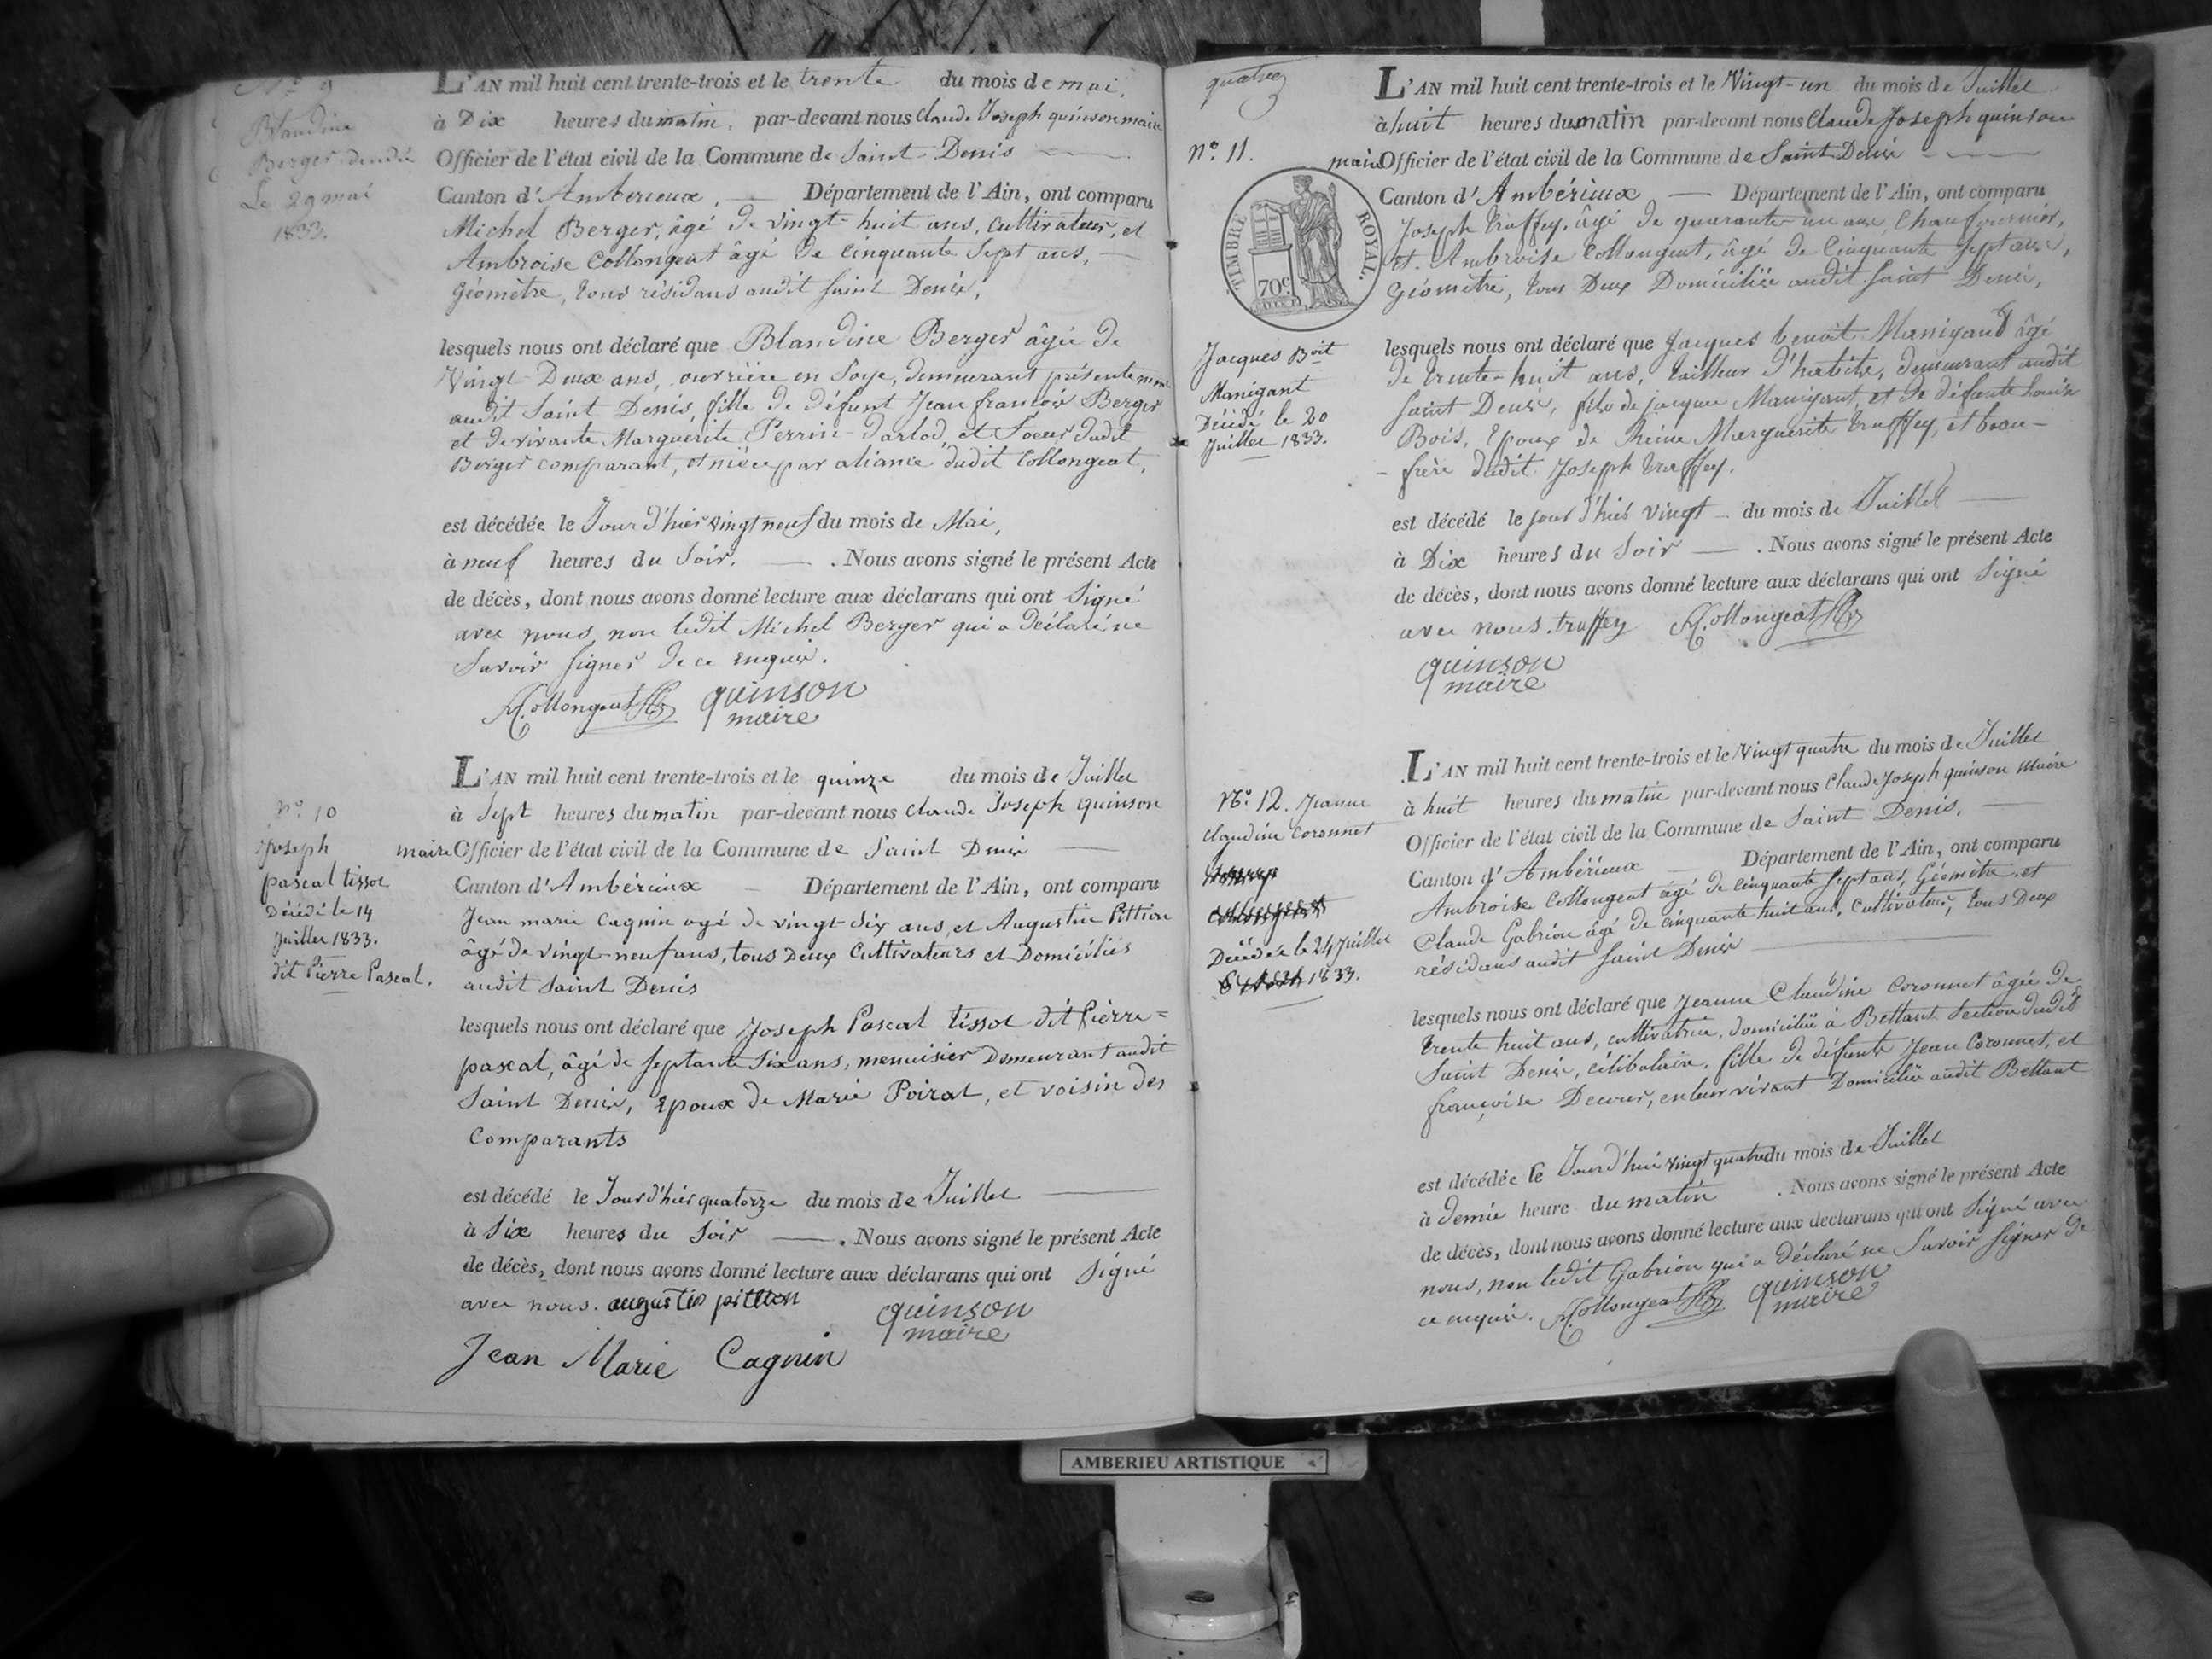 N.º 9
Blandine
Berger décédée
Le 29 mai
1833.
L'AN mil huit cent trente-trois et le trente du mois de mai.
à Dix heures du matin, par-devant nous Claude Joseph quinson maire
Officier de l'état civil de la Commune de Saint-Denis
Canton d'Amberieux, Département de l'Ain, ont comparu
Michel Berger, âgé de vingt-huit ans, cultivateur, et
Ambroise Collongeat âgé de cinquante sept ans,
Géomètre, tous résidans audit Saint Denis,
lesquels nous ont déclaré que Blandine Berger âgée de
Vingt-Deux ans, ouvrière en Soye, demeurant présentement
audit Saint Denis, fille de défunt Jean françois Berger
et de vivante Marguerite Perrin-Darlod, et Soeur dudit
Berger comparant, et nièce par aliance dudit Collongeat,
est décédée le Jour d'hier vingt neuf du mois de Mai,
à neuf heures du Soir. . Nous avons signé le présent Acte
de décès, dont nous avons donné lecture aux déclarans qui ont Signé
avec nous, non ledit Michel Berger qui a déclaré ne
Savoir signer de ce enquis.
A. Collongeat quinson
maire
N.º 10
Joseph
pascal tissot
Décédé le 14
Juillet 1833.
dit Pierre Pascal.
L'AN mil huit cent trente-trois et le quinze du mois de Juillet
à Sept heures du matin par-devant nous Claude Joseph quinson
maire Officier de l'état civil de la Commune de Saint Denis
Canton d'Ambérieux Département de l'Ain, ont comparu
Jean marie Cagnin agé de vingt-six ans, et Augustin Pittion
âgé de vingt-neuf ans, tous Deux Cultivateurs et Domiciliés
audit Saint Denis
lesquels nous ont déclaré que Joseph Pascal tissot dit Pierre=
pascal, âgé de septante Six ans, menuisier Demeurant audit
Saint Denis, Epoux de Marie Poirat, et voisin des
Comparants
est décédé le Jour d'hier quatorze du mois de Juillet
à Six heures du Soir . Nous avons signé le présent Acte
de décès, dont nous avons donné lecture aux déclarans qui ont Signé
avec nous. augustin pittion quinson
maire
Jean Marie Cagnin
quatre
N.º 11.
TIMBRE ROYAL.
70c
Jacques Boit
Manigant
Décédé le 20
Juillet 1833.
L'AN mil huit cent trente-trois et le Vingt-un du mois de Juillet
à huit heures du matin par-devant nous Claude Joseph quinson
maire Officier de l'état civil de la Commune de Saint Denis
Canton d'Ambérieux Département de l'Ain, ont comparu
Joseph truffey, âgé de quarante-un ans, Chaufournier,
et Ambroise Collongeat, âgé de Cinquante Sept ans,
Géomètre, tous Deux Domiciliés audit Saint Denis,
lesquels nous ont déclaré que Jacques benoit Manigand âgé
de trente-huit ans, tailleur d'habits, demeurant audit
Saint Denis, fils de jacques Manigant, et de défunte Louise
Bois, Epoux de Reine Marguerite truffey, et beau-
-frère dudit Joseph truffey.
est décédé le jour d'hier vingt du mois de Juillet
à Dix heures du Soir . Nous avons signé le présent Acte
de décès, dont nous avons donné lecture aux déclarans qui ont Signé
avec nous. truffey A. Collongeat
quinson
maire
N.º 12. Jeanne
claudine Coronnet
Décédée le 24 Juillet
1833.
L'AN mil huit cent trente-trois et le Vingt quatre du mois de Juillet
à huit heures du matin par-devant nous Claude Joseph quinson maire
Officier de l'état civil de la Commune de Saint Denis,
Canton d'Ambérieux Département de l'Ain, ont comparu
Ambroise Collongeat âgé de cinquante sept ans, Géomètre, et
Claude Gabrion âgé de cinquante huit ans, cultivateur, tous Deux
résidans audit Saint Denis
lesquels nous ont déclaré que Jeanne Claudine Coronnet âgée de
trente huit ans, cultivatrice, domiciliée à Bettant Section dudit
Saint Denis, célibataire, fille de défunts Jean Coronnet, et
françoise Decour, en leur vivant Domiciliés audit Bettant
est décédée le Jourd'hui vingt quatre du mois de Juillet
à demie heure du matin . Nous avons signé le présent Acte
de décès, dont nous avons donné lecture aux déclarans qui ont Signé avec
nous, non ledit Gabrion qui a Déclaré ne Savoir signer de
ce enquis. A. Collongeat quinson
maire
AMBERIEU ARTISTIQUE